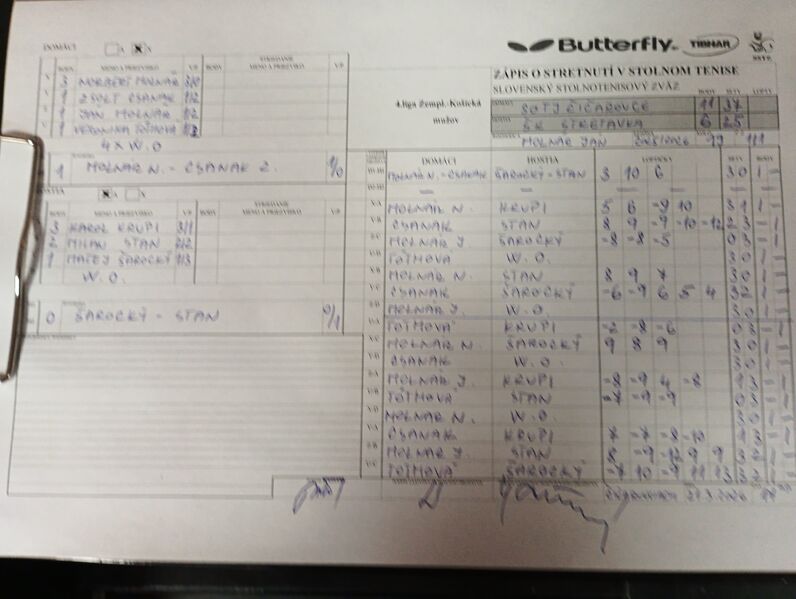 DOMÁCI A X
Butterfly TIBHAR
SSTZ
BODY MENO A PRIEZVISKO V/P BODY STRIEDANIE MENO A PRIEZVISKO V/P
3 NORBERT MOLNÁR 3/0
1 ZSOLT CSANAK 1/2
1 JAN MOLNÁR 1/2
1 VERONIKA TÓTHOVÁ 1/2
4 X W.O
1 MOLNAR N. - CSANAK Z. 1/0
X
BODY MENO A PRIEZVISKO V/P BODY STRIEDANIE MENO A PRIEZVISKO V/P
3 KAROL KRUPI 3/1
2 MILAN STAN 2/2
1 MATEJ ŠAROCKÝ 1/3
W.O.
0 ŠAROCKÝ - STAN 0/1
ZÁPIS O STRETNUTÍ V STOLNOM TENISE
SLOVENSKÝ STOLNOTENISOVÝ ZVÄZ
BODY SETY LOPTY
4.liga Zempl.-Košická
mužov
SOTJ ČIČAROVCE 11 37
ŠK STRETAVKA 6 25
MOLNÁR JAN
DOMÁCI HOSTIA LOPTIČKY SETY BODY
MOLNÁR N. - CSANAK ŠAROCKÝ - STAN 3 10 6 3 0 1 -
MOLNÁR N. KRUPI 5 6 -9 10 3 1 1 -
CSANAK STAN 8 9 -9 -10 -12 2 3 - 1
MOLNÁR J. ŠAROCKÝ -8 -8 -5 0 3 - 1
TÓTHOVÁ W.O. 3 0 1 -
MOLNÁR N. STAN 8 9 7 3 0 1 -
CSANAK ŠAROCKÝ -6 -9 6 5 4 3 2 1 -
MOLNÁR J. W.O. 3 0 1 -
TÓTHOVÁ KRUPI -2 -8 -6 0 3 - 1
MOLNÁR N. ŠAROCKÝ 9 8 9 3 0 1 -
CSANAK W.O. 3 0 1 -
MOLNÁR J. KRUPI -8 -9 4 -8 1 3 - 1
TÓTHOVÁ STAN -7 -9 -9 0 3 - 1
MOLNÁR N. W.O. 3 0 1 -
CSANAK KRUPI 7 -7 -8 -10 1 3 - 1
MOLNÁR J. STAN 8 -9 -12 9 9 3 2 1 -
TÓTHOVÁ ŠAROCKÝ -7 10 -9 11 13 3 2 1 -